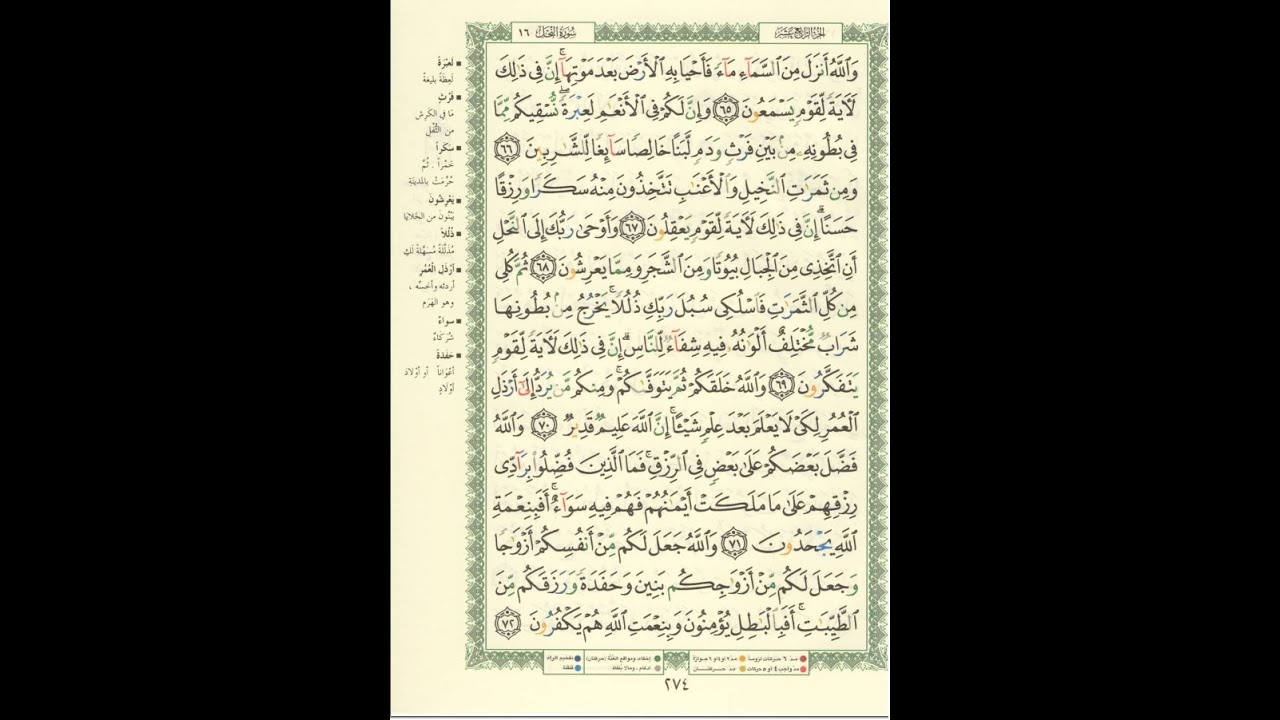 الجزء الرابع عشر
سورة النحل ١٦
وَاللَّهُ أَنزَلَ مِنَ السَّمَآءِ مَآءً فَأَحْيَا بِهِ الْأَرْضَ بَعْدَ مَوْتِهَآ ۚ إِنَّ فِى ذَٰلِكَ
لَأَيَةً لِّقَوْمٍ يَسْمَعُونَ ٦٥ وَإِنَّ لَكُمْ فِى الْأَنْعَٰمِ لَعِبْرَةً ۖ نُّسْقِيكُم مِّمَّا
فِى بُطُونِهِۦ مِنۢ بَيْنِ فَرْثٍ وَدَمٍ لَّبَنًا خَالِصًا سَآئِغًا لِّلشَّٰرِبِينَ ٦٦
وَمِن ثَمَرَٰتِ النَّخِيلِ وَالْأَعْنَٰبِ تَتَّخِذُونَ مِنْهُ سَكَرًا وَرِزْقًا
حَسَنًا ۗ إِنَّ فِى ذَٰلِكَ لَأَيَةً لِّقَوْمٍ يَعْقِلُونَ ٦٧ وَأَوْحَىٰ رَبُّكَ إِلَى النَّحْلِ
أَنِ اتَّخِذِى مِنَ الْجِبَالِ بُيُوتًا وَمِنَ الشَّجَرِ وَمِمَّا يَعْرِشُونَ ٦٨ ثُمَّ كُلِى
مِن كُلِّ الثَّمَرَٰتِ فَاسْلُكِى سُبُلَ رَبِّكِ ذُلُلًا ۚ يَخْرُجُ مِنۢ بُطُونِهَا
شَرَابٌ مُّخْتَلِفٌ أَلْوَٰنُهُۥ فِيهِ شِفَآءٌ لِّلنَّاسِ ۗ إِنَّ فِى ذَٰلِكَ لَأَيَةً لِّقَوْمٍ
يَتَفَكَّرُونَ ٦٩ وَاللَّهُ خَلَقَكُمْ ثُمَّ يَتَوَفَّىٰكُمْ ۚ وَمِنكُم مَّن يُرَدُّ إِلَىٰٓ أَرْذَلِ
الْعُمُرِ لِكَىْ لَا يَعْلَمَ بَعْدَ عِلْمٍ شَيْـًٔا ۚ إِنَّ اللَّهَ عَلِيمٌ قَدِيرٌ ٧٠ وَاللَّهُ
فَضَّلَ بَعْضَكُمْ عَلَىٰ بَعْضٍ فِى الرِّزْقِ ۚ فَمَا الَّذِينَ فُضِّلُوا بِرَآدِّى
رِزْقِهِمْ عَلَىٰ مَا مَلَكَتْ أَيْمَٰنُهُمْ فَهُمْ فِيهِ سَوَآءٌ ۚ أَفَبِنِعْمَةِ
اللَّهِ يَجْحَدُونَ ٧١ وَاللَّهُ جَعَلَ لَكُم مِّنْ أَنفُسِكُمْ أَزْوَٰجًا
وَجَعَلَ لَكُم مِّنْ أَزْوَٰجِكُم بَنِينَ وَحَفَدَةً وَرَزَقَكُم مِّنَ
الطَّيِّبَٰتِ ۚ أَفَبِالْبَٰطِلِ يُؤْمِنُونَ وَبِنِعْمَتِ اللَّهِ هُمْ يَكْفُرُونَ ٧٢
لَعِبْرَةً
لَعِظَةً بليغةً
فَرْثٍ
مَا فِي الكَرِشِ
من الثُّفْلِ
سَكَراً
خَمْراً . ثُمَّ
حُرِّمَتْ بالمدينةِ
يَعْرِشُونَ
يَبْنُونَ من الخلايا
ذُلُلاً
مُذَلَّلَةً مُسَهَّلَةً لَكِ
أرْذَلِ الْعُمُرِ
أردئه وأخسِّه ،
وهو الهَرَم
سواءٌ
شركاءُ
حَفَدةً
أعْوَاناً أو أوْلَادَ
أوْلَادٍ
مدّ ٦ حركات لزوماً
مدّ٢ أو٤ أو ٦ جوازاً
إخفاء، ومواقع الغُنَّة (حركتان)
تفخيم الراء
مدّ واجب ٤ أو ٥ حركات
مدّ حركتان
إدغام ، ومالا يُلفَظ
قلقلة
٢٧٤